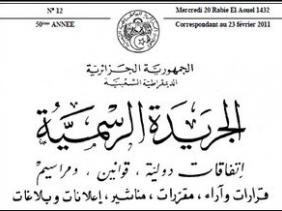 N° 12
Mercredi 20 Rabie El Aouel 1432
50ème ANNEE
Correspondant au 23 février 2011
الجمهورية الجزائرية
الديمقراطية الشعبية
الجريدة الرسمية
اتفاقات دولية، قوانين، ومراسيم
قرارات وآراء، مقررات، مناشير، إعلانات وبلاغات